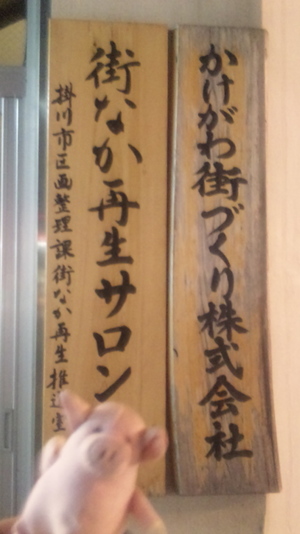 かけがわ街づくり株式会社
街なか再生サロン
掛川市区画整理課街なか再生推進室